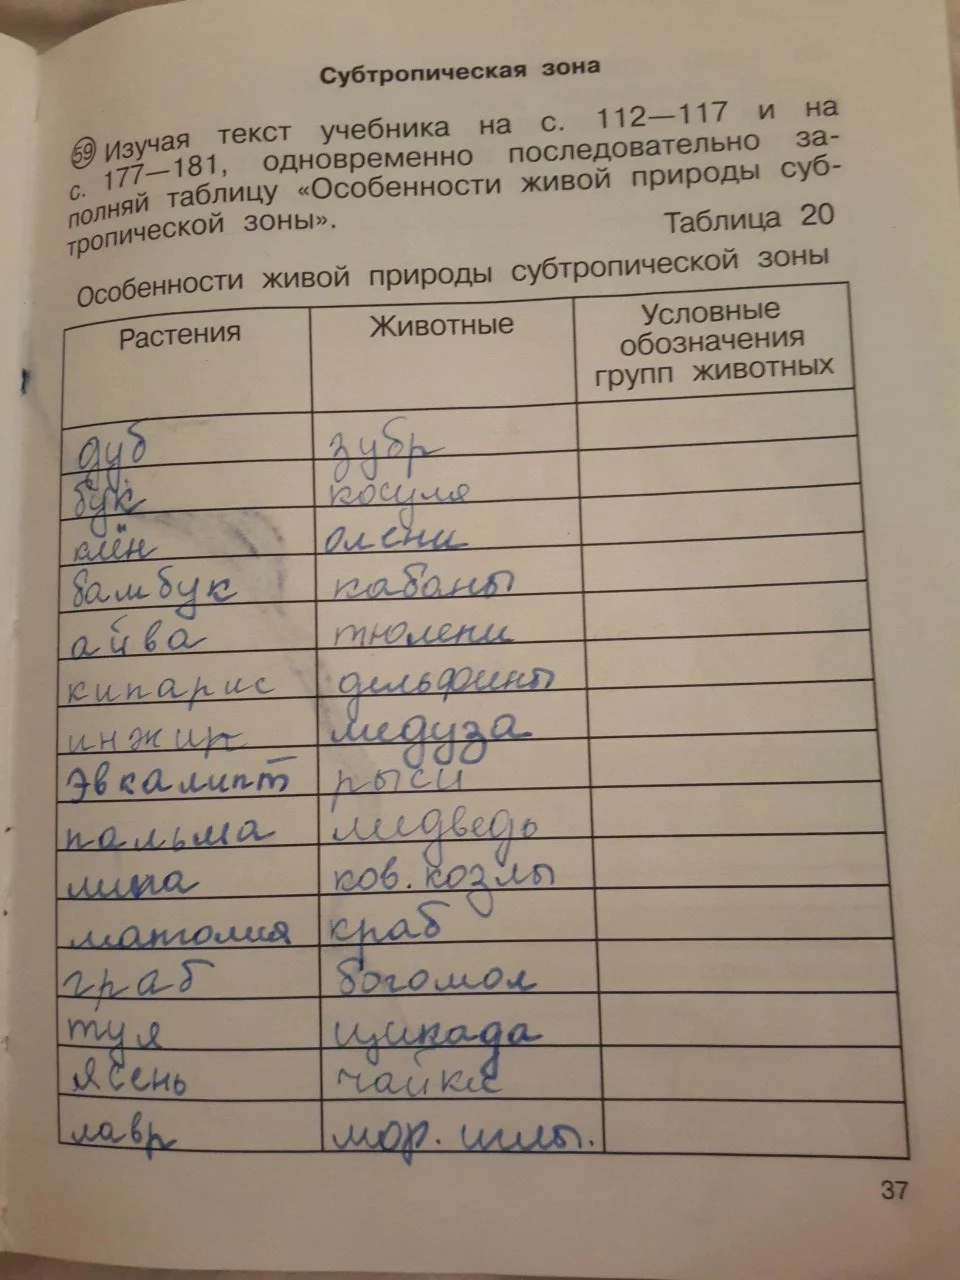 Субтропическая зона
59 Изучая текст учебника на с. 112—117 и на
с. 177—181, одновременно последовательно за-
полняй таблицу «Особенности живой природы суб-
тропической зоны».
Таблица 20
Особенности живой природы субтропической зоны
Растения Животные Условные
обозначения
групп животных
дуб зубр
бук косуля
клён олени
бамбук кабаны
айва тюлени
кипарис дельфины
инжир медуза
эвкалипт рыси
пальма медведь
липа ков. козлы
магнолия краб
граб богомол
туя цикада
ясень чайки
лавр мор. иглы.
37